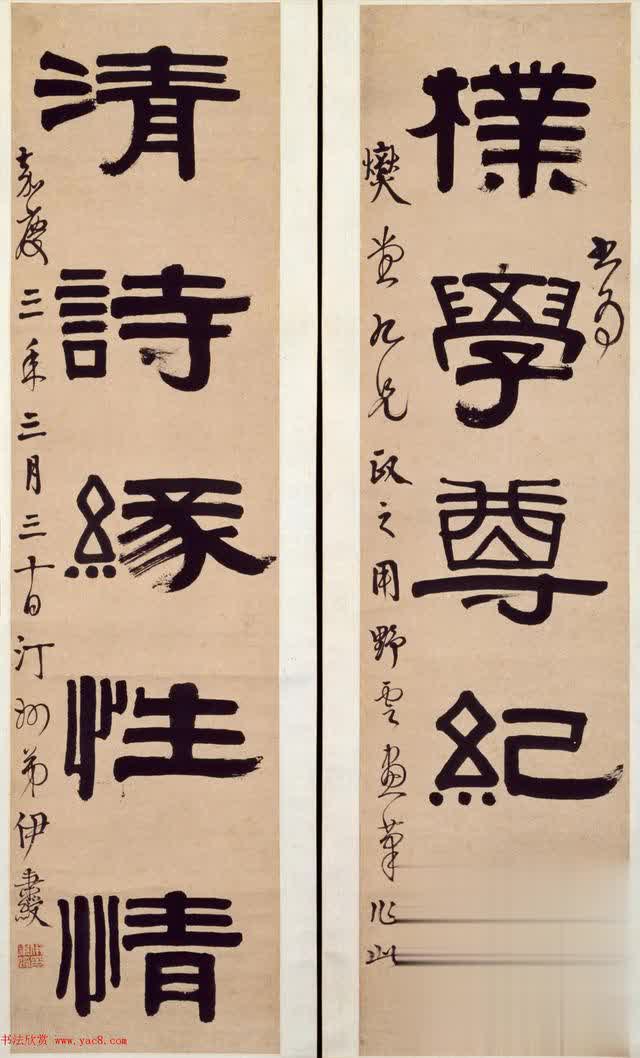 書為
樸學尊紀
堂九兄政之用野雲畫筆作此
清詩緣性情
嘉慶三年三月三十日汀州弟伊秉綬
书法欣赏 www.yac8.com